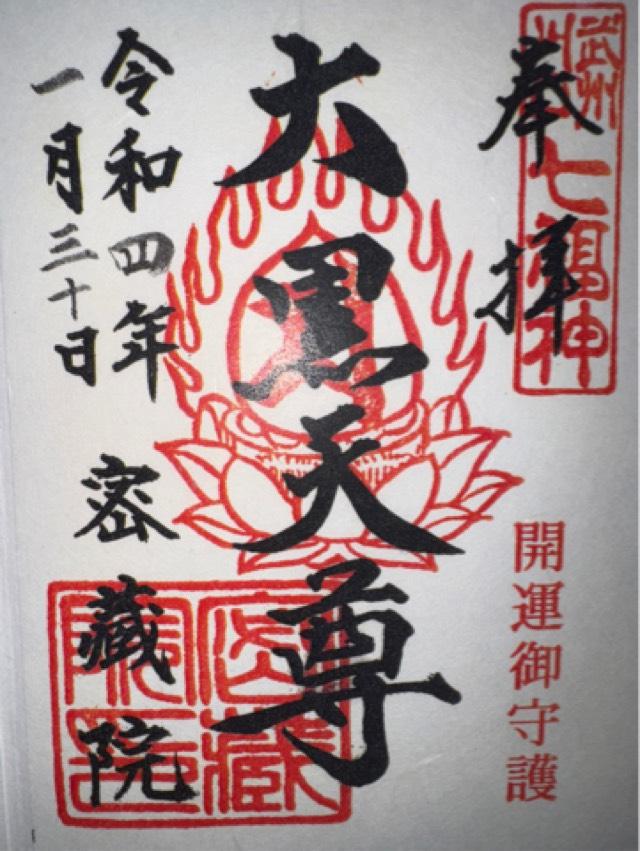 奉拝
武州
七福神
開運御守護
大黒天尊
令和四年
一月三十日
密蔵院
密蔵